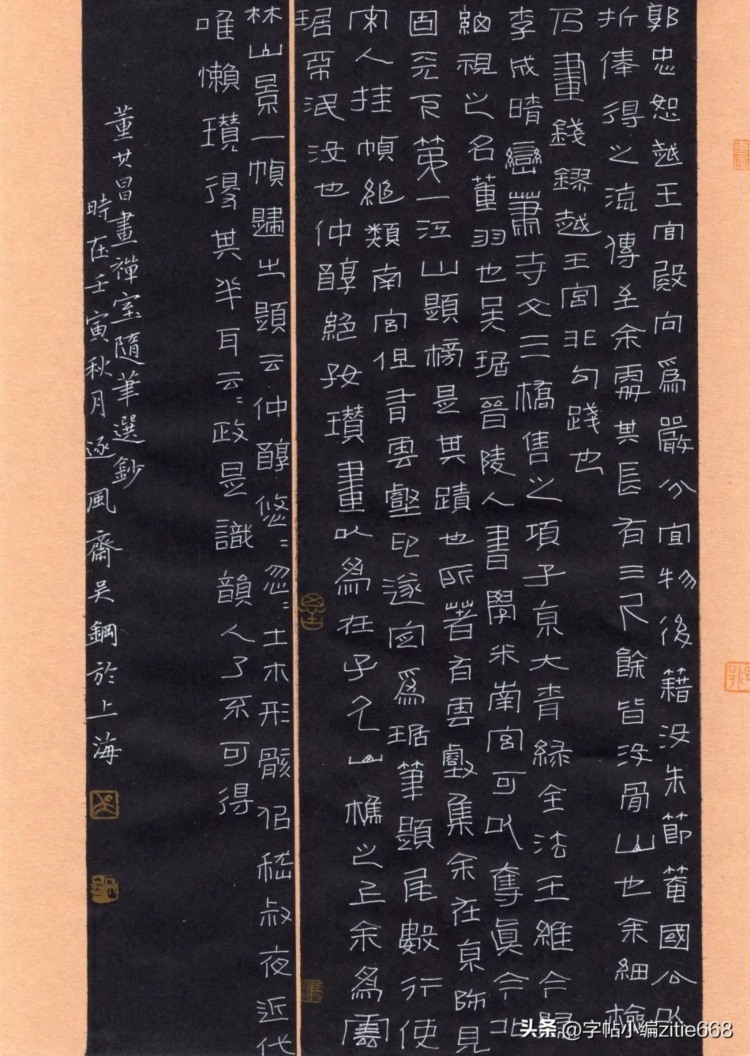 郭忠恕越王宮殿向為嚴分宜物後籍沒朱節菴國公以
折俸得之流傳至余處其長有三尺餘皆沒骨山也余細檢
乃畫錢鏐越王宮非勾踐也
李成晴巒蕭寺文三橋售之項子京大青綠全法王維今歸
細視之名董羽也吳琚晉陵人書學米南宮可以奪真今北
固天下第一江山題榜是其蹟也所著有雲壑集余在京師見
宋人挂幀絕類南宮但有雲壑印遂定為琚筆題尾數行使
琚不泯沒也仲醇絕好瓚畫以為在子久山樵之上余為雲
林山景一幀歸之題云仲醇悠〻忽〻土木形骸侣嵇叔夜近代
唯懶瓚得其半耳云〻政是識韻人了不可得
董其昌畫禪室隨筆選鈔
時在壬寅秋月逐風齋吳鋼於上海
头条@字帖小编zitie668